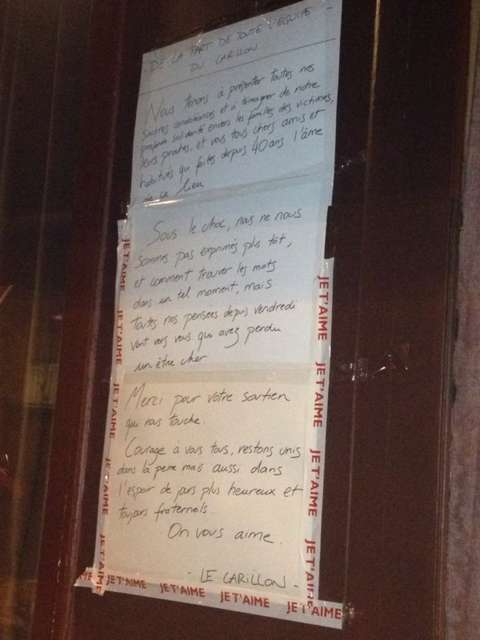 DE LA PART DE TOUTE L'EQUIPE
DU CARILLON
Nous tenons à présenter toutes nos
sincères condoléances et à témoigner de notre
profonde solidarité envers les familles des victimes,
leurs proches, et vous tous chers amis et
habitués qui faites depuis 40 ans l'âme
de ce lieu
Sous le choc, nous ne nous
sommes pas exprimés plus tôt,
et comment trouver les mots
dans un tel moment, mais
toutes nos pensées depuis vendredi
vont vers vous qui avez perdu
un être cher
Merci pour votre soutien
qui nous touche.
Courage à vous tous, restons unis
dans la peine mais aussi dans
l'espoir de jours plus heureux et
toujours fraternels.
On vous aime.
- LE CARILLON -
JE T'AIME
JE T'AIME
JE T'AIME
JE T'AIME
JE T'AIME
JE T'AIME
JE T'AIME
JE T'AIME
JE T'AIME
JE T'AIME
JE T'AIME
JE T'AIME
JE T'AIME